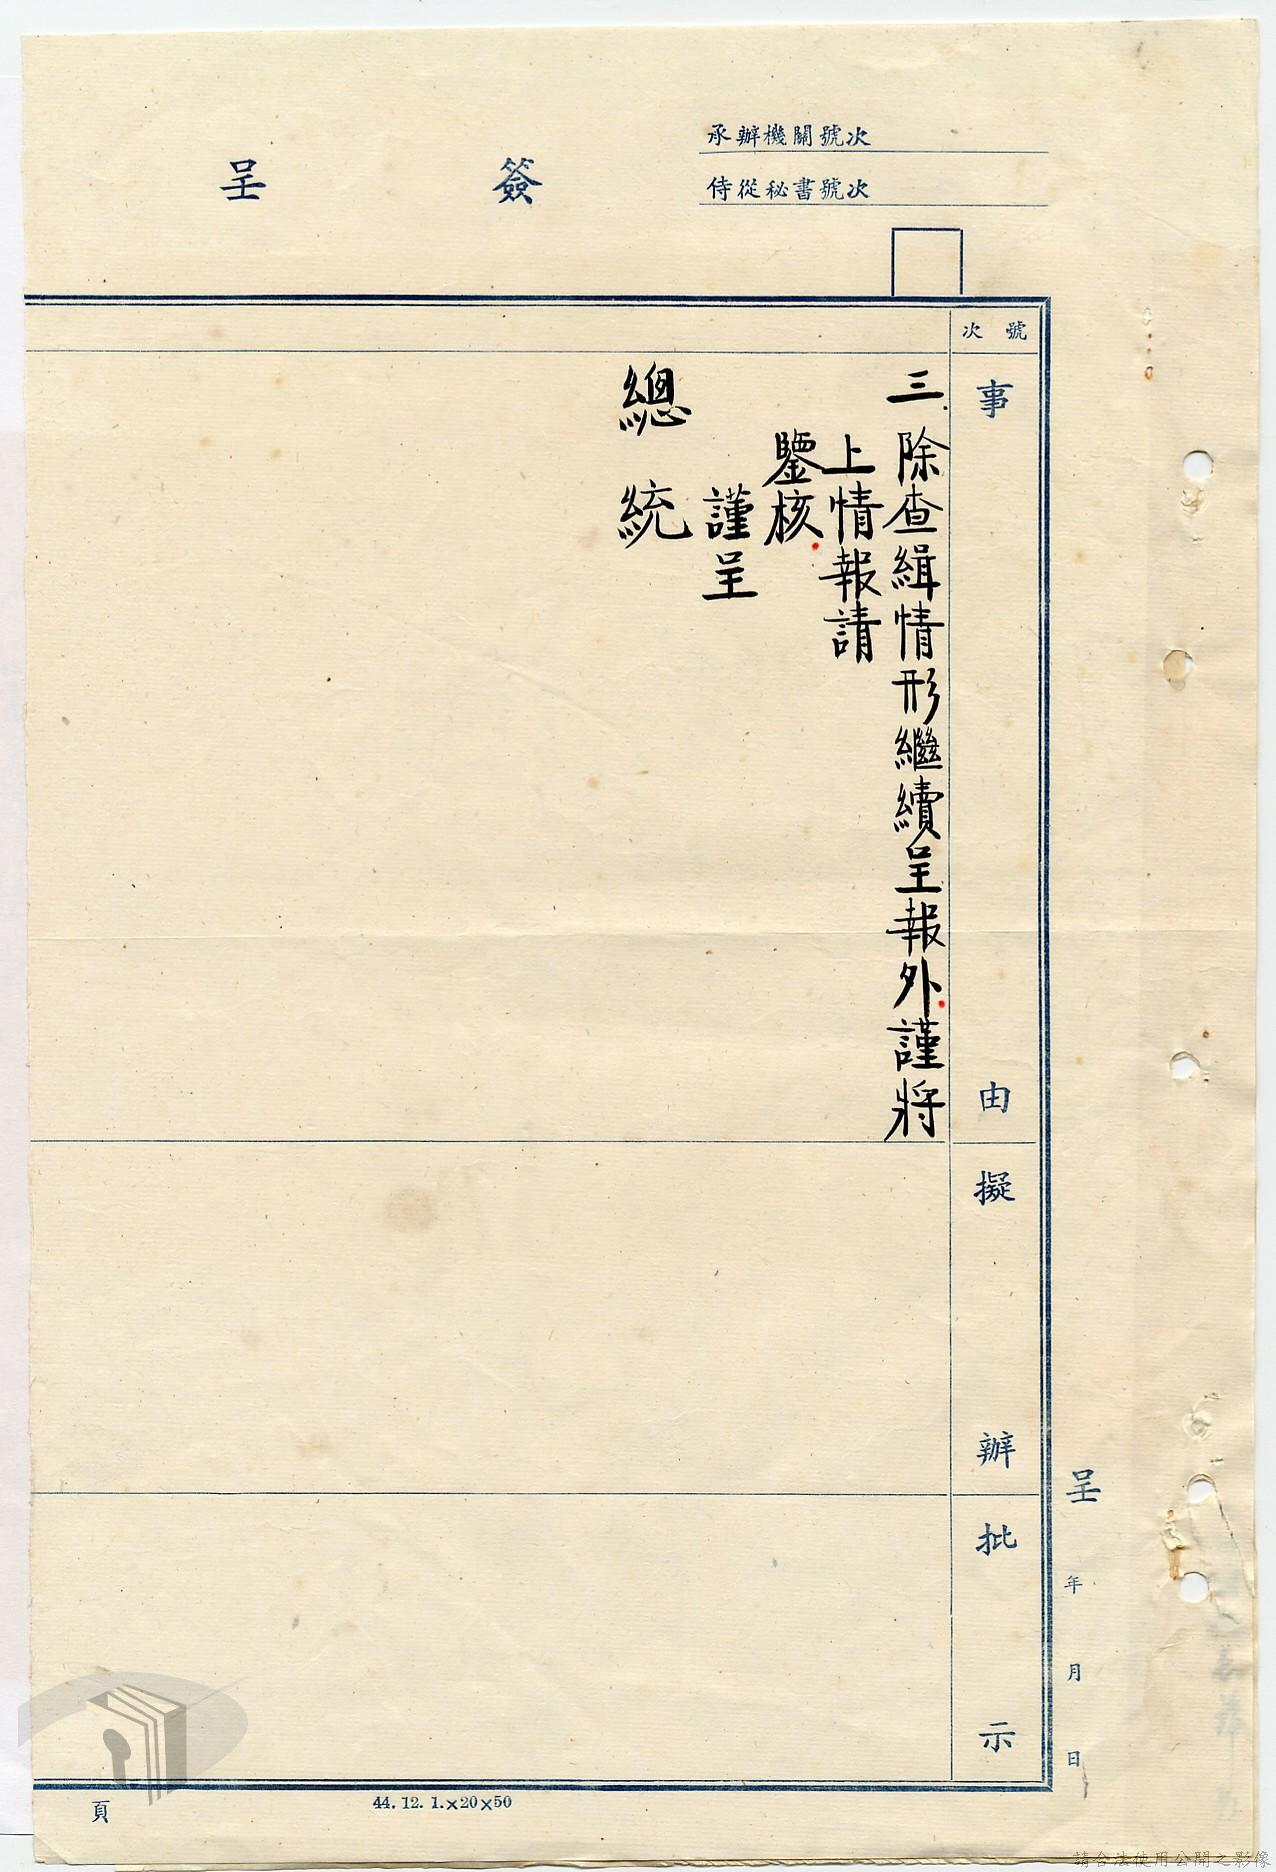 承辦機關號次
侍從秘書號次
簽呈
號次
事由
擬辦
批示
三、除查緝情形繼續呈報外謹將
上情報請
鑒核
謹呈
總統
呈 年 月 日
44.12.1.×20×50
頁
請合法使用公開之影像